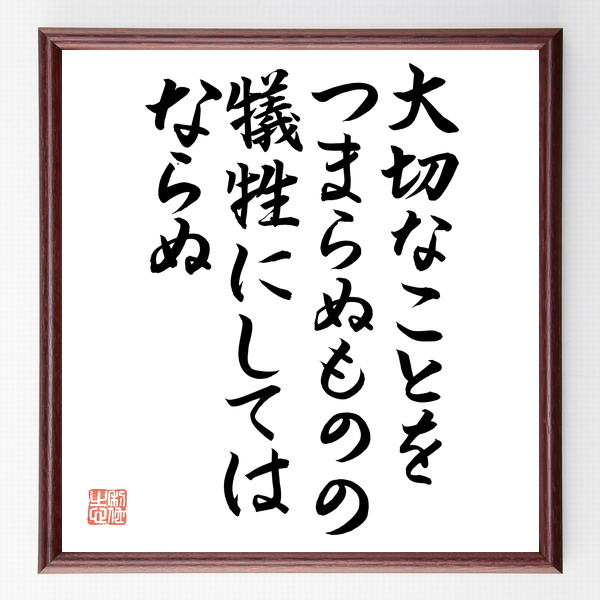 大切なことを
つまらぬものの
犠牲にしては
ならぬ